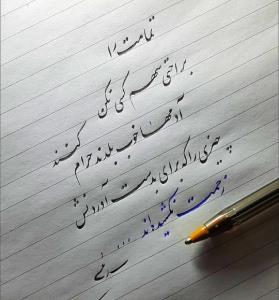 تمامت را
براحتی سهم کسی نکن
آدمها خوب بلدند حرام کنند
چیزی را که برای بدست آوردنش
زحمت نکشیده‌اند ....